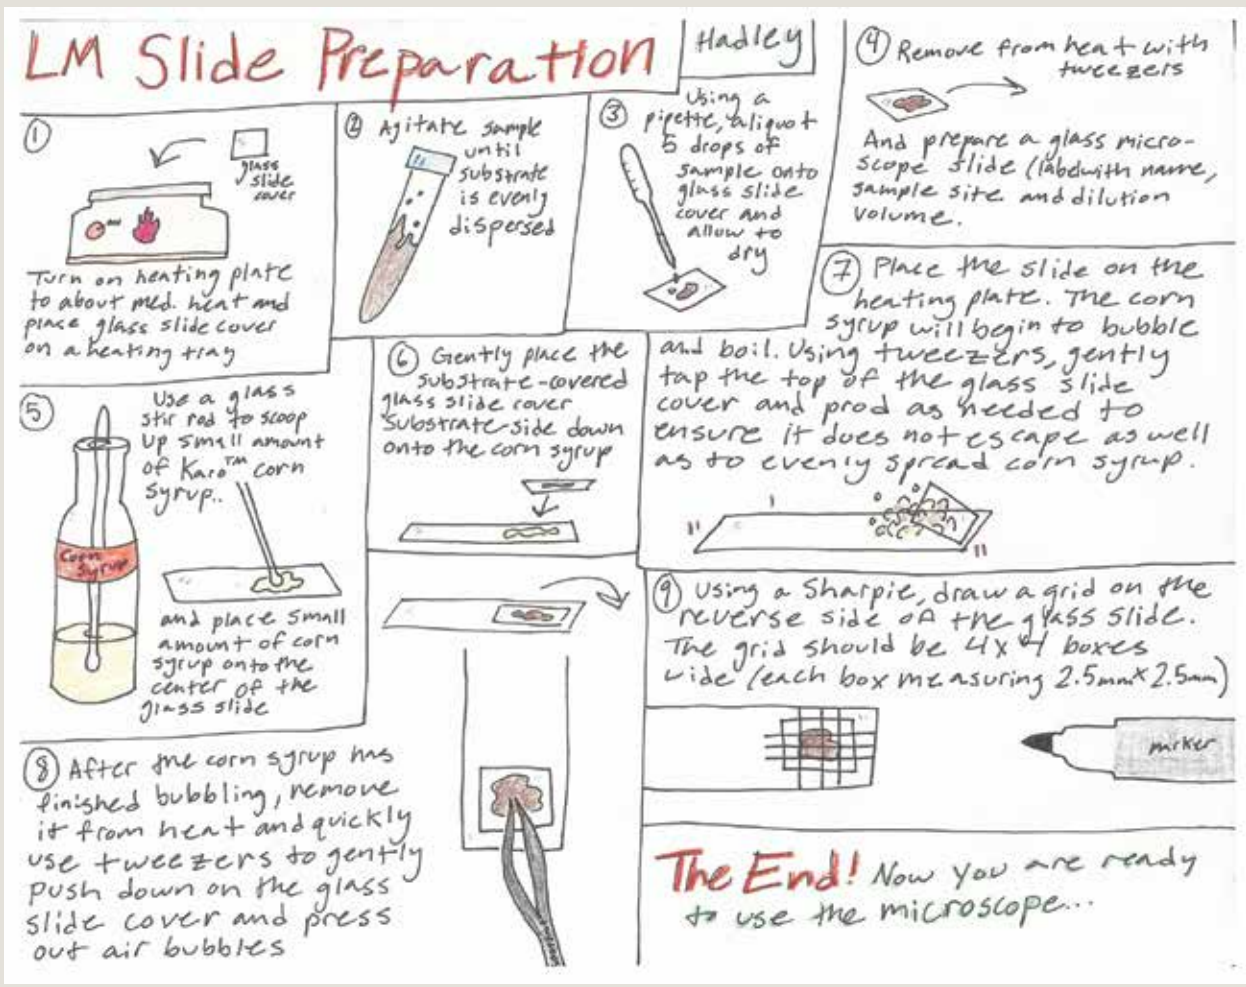 LM Slide Preparation
Hadley
①
glass
slide
cover
Turn on heating plate
to about med. heat and
place glass slide cover
on a heating tray
② Agitate sample
until
substrate
is evenly
dispersed
③ Using a
pipette, aliquot
5 drops of
sample onto
glass slide
cover and
allow to
dry
④ Remove from heat with
tweezers
And prepare a glass micro-
scope slide (label with name,
sample site and dilution
volume.
⑤ Use a glass
stir rod to scoop
up small amount
of Karo™ corn
syrup..
Corn
Syrup
and place small
amount of corn
syrup onto the
center of the
glass slide
⑥ Gently place the
substrate-covered
glass slide cover
substrate-side down
onto the corn syrup
⑦ Place the slide on the
heating plate. The corn
syrup will begin to bubble
and boil. Using tweezers, gently
tap the top of the glass slide
cover and prod as needed to
ensure it does not escape as well
as to evenly spread corn syrup.
⑧ After the corn syrup has
finished bubbling, remove
it from heat and quickly
use tweezers to gently
push down on the glass
slide cover and press
out air bubbles
⑨ Using a Sharpie, draw a grid on the
reverse side of the glass slide.
The grid should be 4x4 boxes
wide (each box measuring 2.5mm x 2.5mm)
mrker
The End! Now you are ready
to use the microscope...